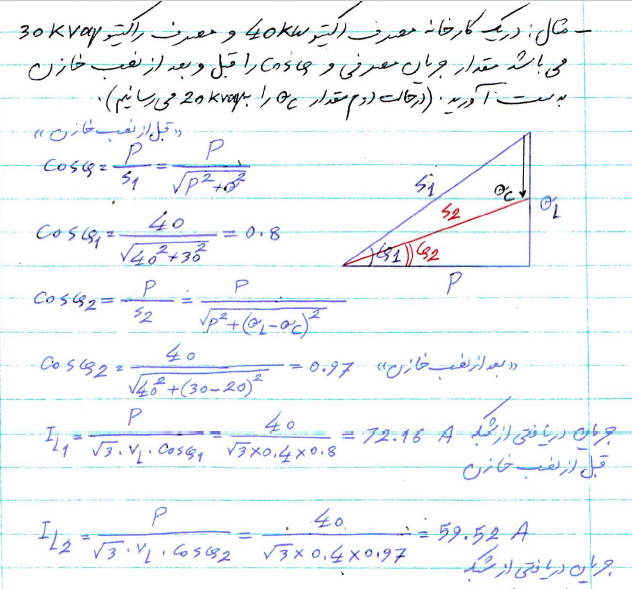 - مثال: در یک کارخانه مصرف اکتیو 40kw و مصرف راکتیو 30kvar
می باشد مقدار جریان مصرفی و Cosφ را قبل و بعد از نصب خازن
به دست آورید. (در حالت دوم مقدار Qc را به 20kvar می رسانیم).
«قبل از نصب خازن»
Cosφ = P/S1 = P/√(P²+Q²)
Cosφ1 = 40/√(40²+30²) = 0.8
Cosφ2 = P/S2 = P/√(P²+(QL-Qc)²)
Cosφ2 = 40/√(40²+(30-20)²) = 0.97 «بعد از نصب خازن»
S1
S2
Qc
QL
φ1
φ2
P
IL1 = P/(√3·VL·Cosφ1) = 40/(√3×0.4×0.8) = 72.16 A جریان دریافتی از شبکه
قبل از نصب خازن
IL2 = P/(√3·VL·Cosφ2) = 40/(√3×0.4×0.97) = 59.52 A
جریان دریافتی از شبکه